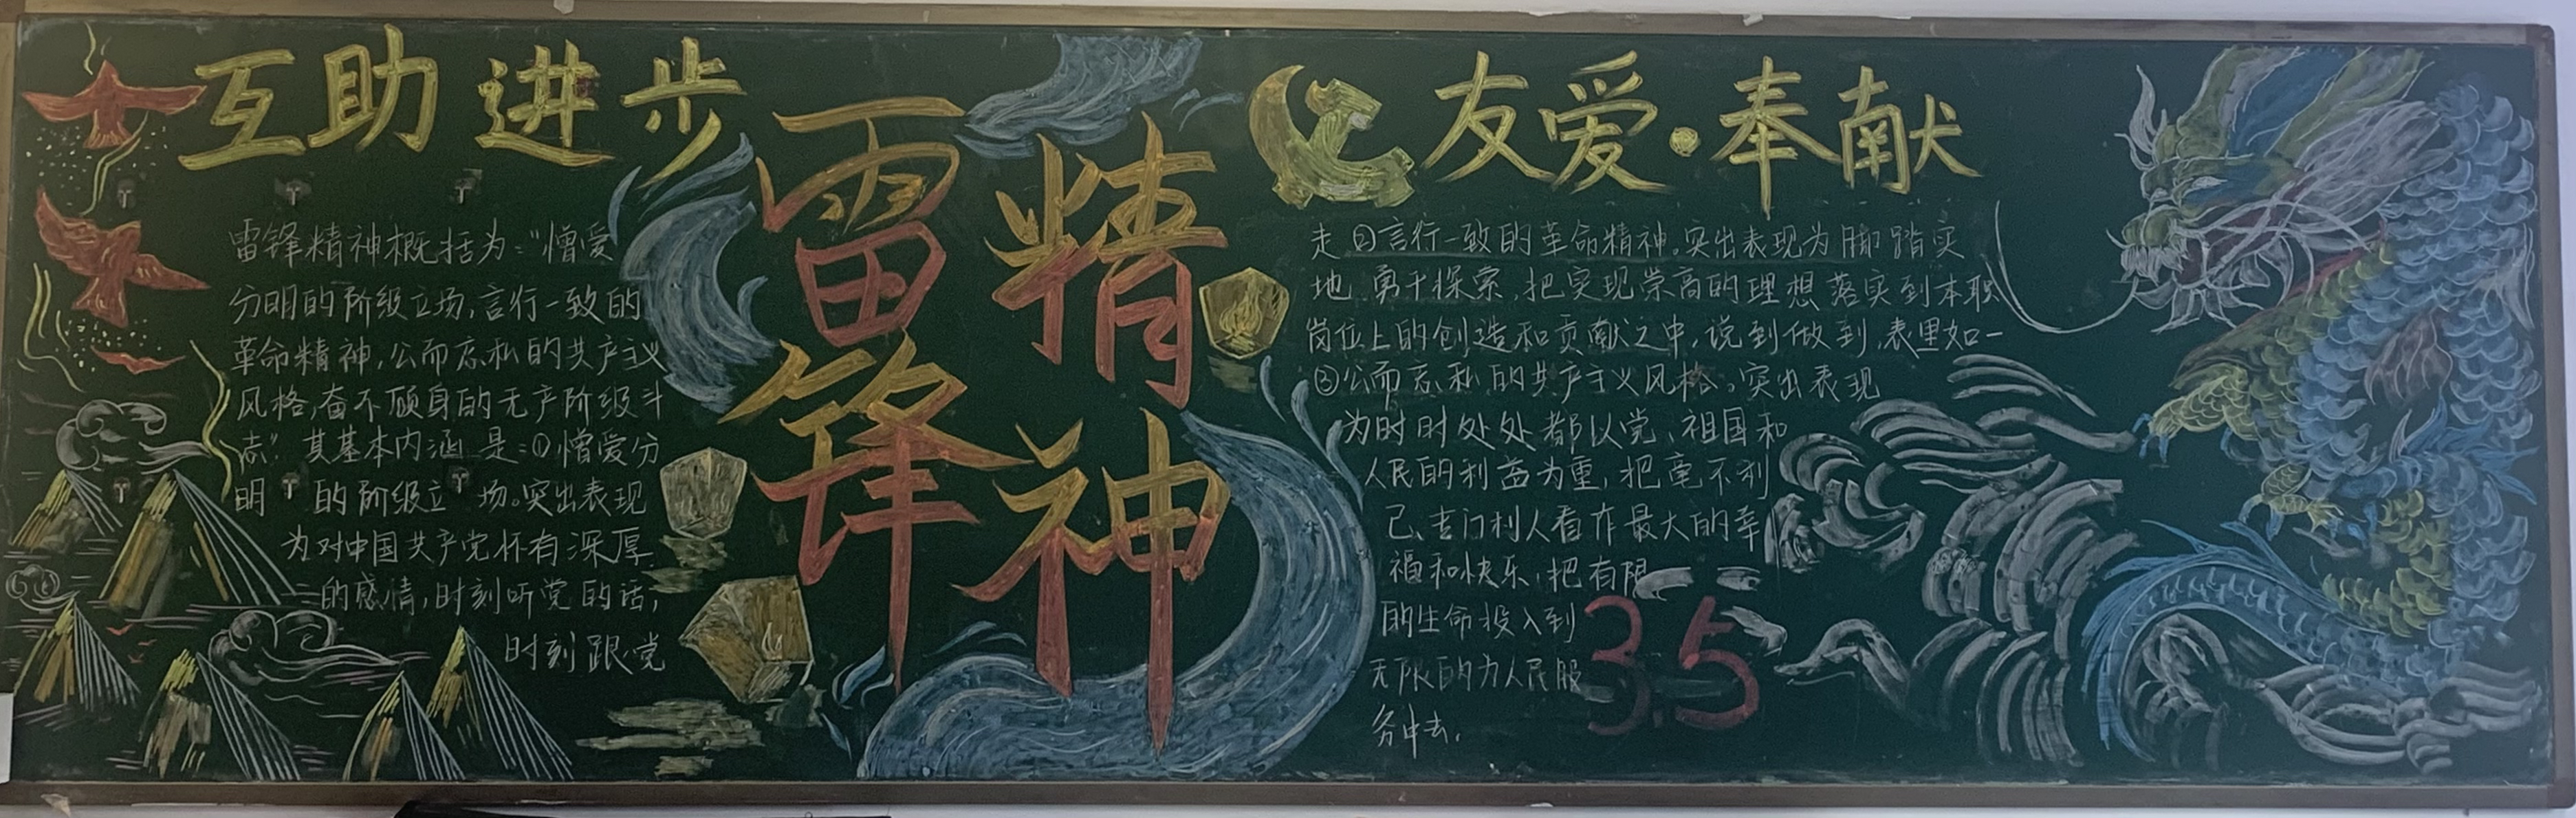 互助进步
雷锋精神概括为:“憎爱
分明的阶级立场,言行一致的
革命精神,公而忘私的共产主义
风格,奋不顾身的无产阶级斗
志”其基本内涵是:①憎爱分
明的阶级立场。突出表现
为对中国共产党怀有深厚
的感情,时刻听党的话,
时刻跟党
雷锋
精神
友爱·奉献
走②言行一致的革命精神。突出表现为脚踏实
地 勇于探索,把实现崇高的理想落实到本职
岗位上的创造和贡献之中,说到做到,表里如一
③公而忘私的共产主义风格。突出表现
为时时处处都以党、祖国和
人民的利益为重,把毫不利
己、专门利人看作最大的幸
福和快乐,把有限
的生命投入到
无限的为人民服
务中去.
3.5